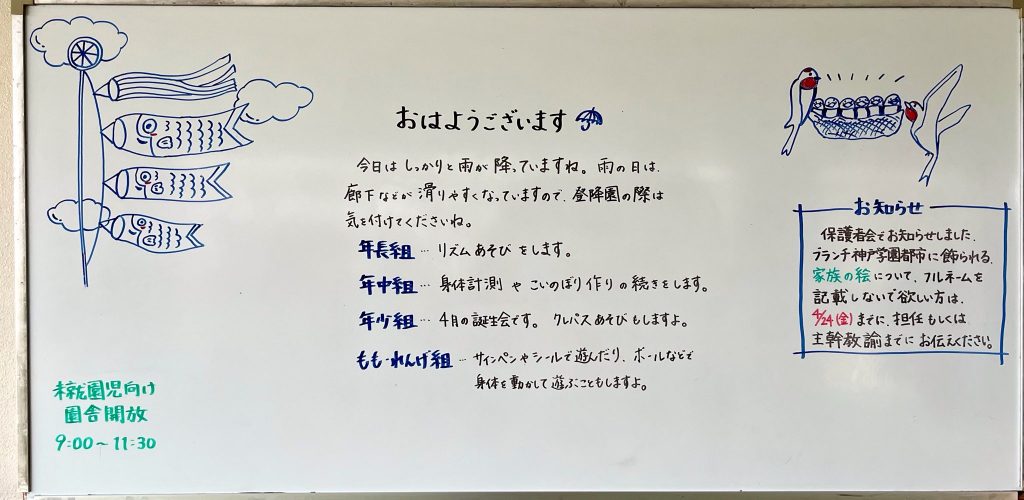 おはようございます
今日はしっかりと雨が降っていますね。雨の日は、
廊下などが滑りやすくなっていますので、登降園の際は
気を付けてくださいね。
年長組…リズムあそびをします。
年中組…身体計測やこいのぼり作りの続きをします。
年少組…4月の誕生会です。クレパスあそびもしますよ。
もも・れんげ組…サインペンやシールで遊んだり、ボールなどで
身体を動かして遊ぶこともしますよ。
お知らせ
保護者会でお知らせしました、
ブランチ神戸学園都市に飾られる、
家族の絵について、フルネームを
記載しないで欲しい方は、
4/24(金)までに、担任もしくは
主幹教諭までにお伝えください。
未就園児向け
園舎開放
9:00〜11:30